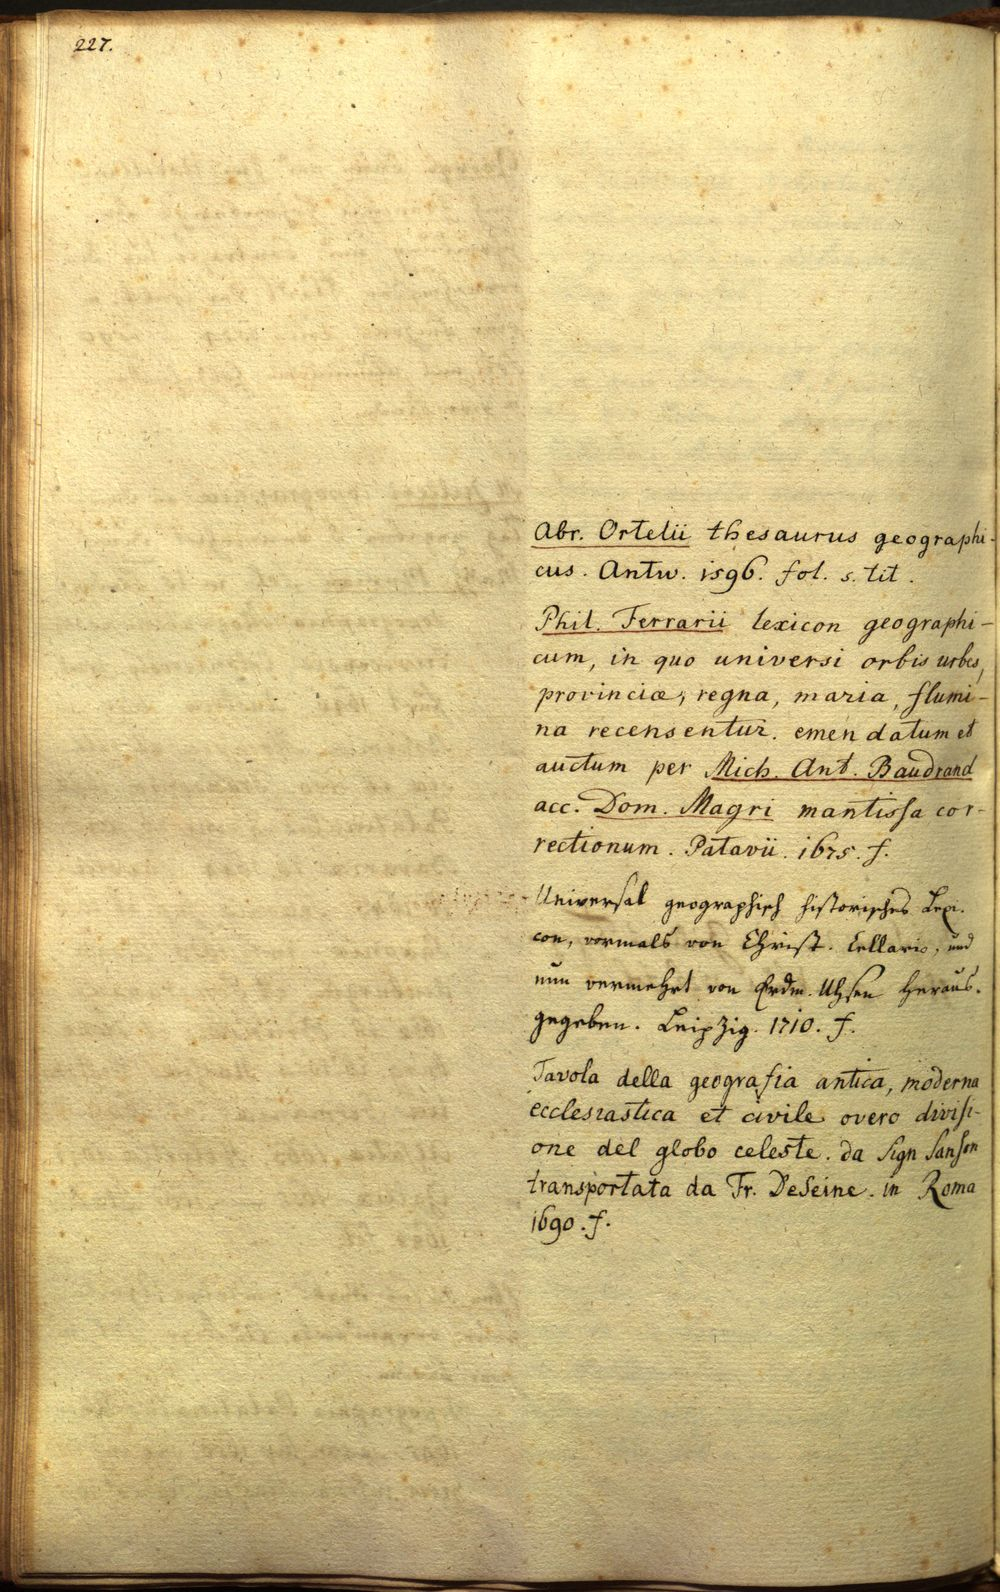 227.
Abr. Ortelii thesaurus geographi-
cus. Antw. 1596. fol. s. tit.
Phil. Ferrarii lexicon geographi-
cum, in quo universi orbis urbes,
provinciæ, regna, maria, flumi-
na recensentur. emendatum et
auctum per Mich. Ant. Baudrand
acc. Dom. Magri mantissa cor-
rectionum. Patavii. 1675. f.
Universal geographisch historisches Lexi-
con, vormals von Christ. Cellario, und
nun vermehrt von Erdm. Uhsen heraus-
gegeben. Leipzig. 1710. f.
Tavola della geografia antica, moderna
ecclesiastica et civile overo divisi-
one del globo celeste. da Sign Sanson
transportata da Fr. DeSeine. in Roma
1690. f.